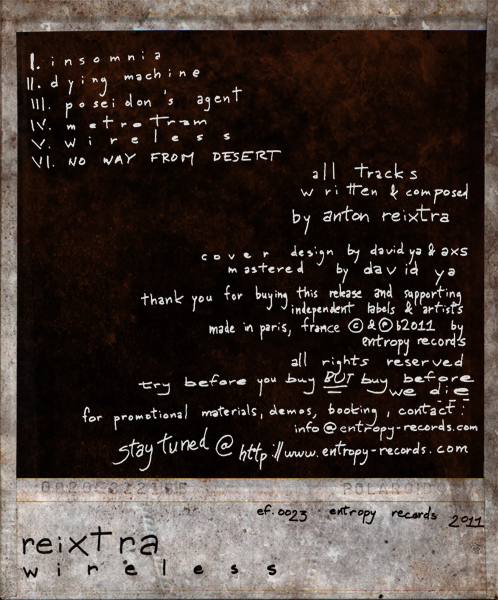 I. insomnia
II. dying machine
III. poseidon's agent
IV. metrotram
V. wireless
VI. NO WAY FROM DESERT
all tracks
written & composed
by anton reixtra
cover design by david ya & axs
mastered by david ya
thank you for buying this release and supporting
independent labels & artists
made in paris, france © & ℗ 2011 by
entropy records
all rights reserved
try before you buy BUT buy before
we die
for promotional materials, demos, booking, contact:
info@entropy-records.com
stay tuned @ http://www.entropy-records.com
ef.0023 entropy records 2011
reixtra
wireless